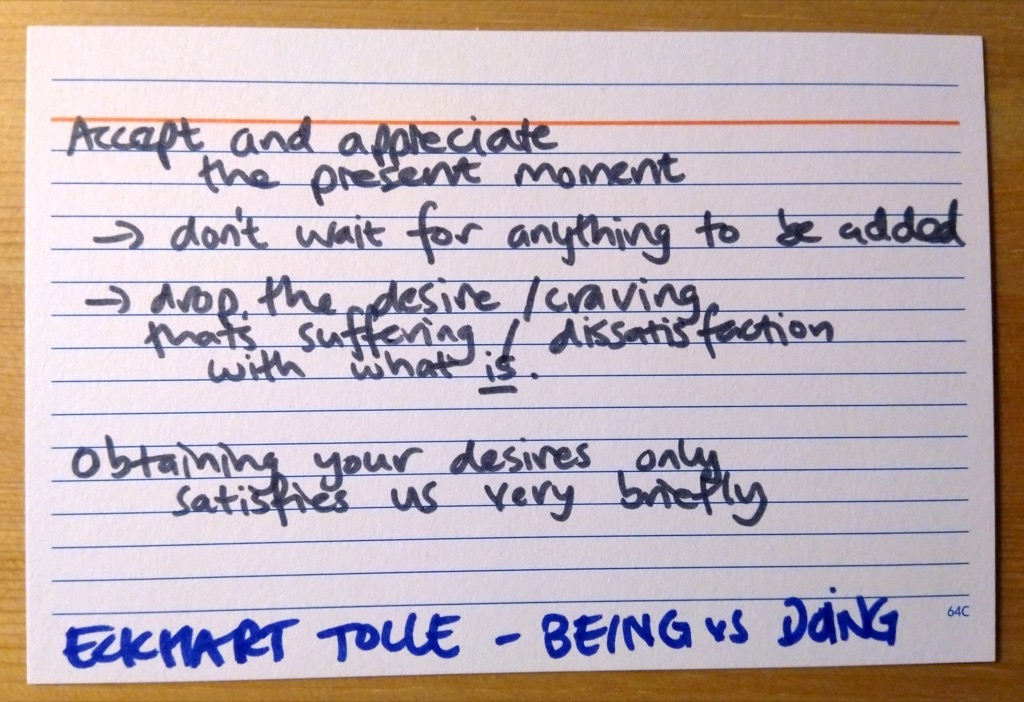 Accept and appreciate
the present moment
→ don't wait for anything to be added
→ drop the desire / craving
thats suffering / dissatisfaction
with what is.
Obtaining your desires only
satisfies us very briefly
64C
ECKHART TOLLE - BEING vs DOING